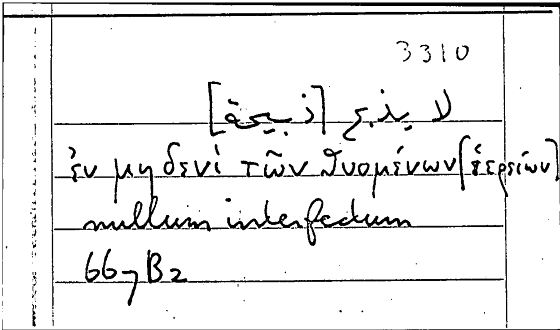 3310
لا يذبح [ذبيحة]
ἐν μηδενὶ τῶν θυομένων [ἱερείων]
nullum interfectum
667B2